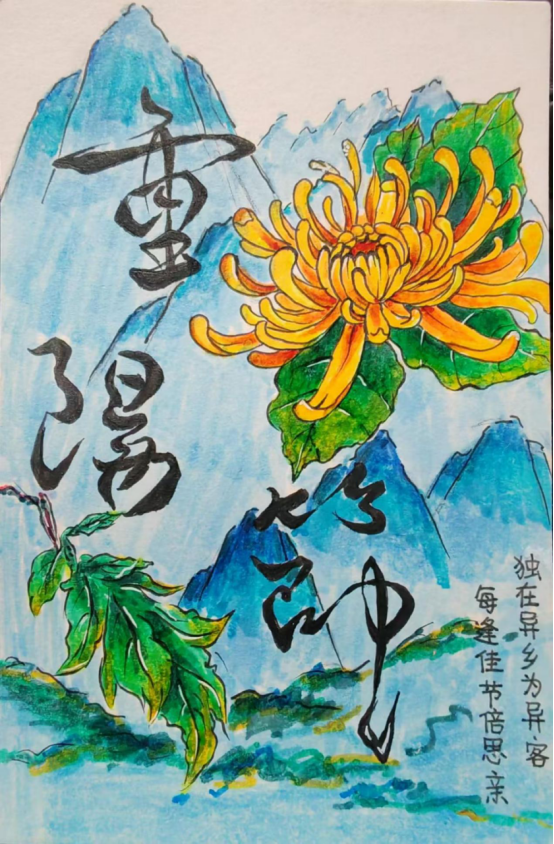 重陽節
独在异乡为异客
每逢佳节倍思亲